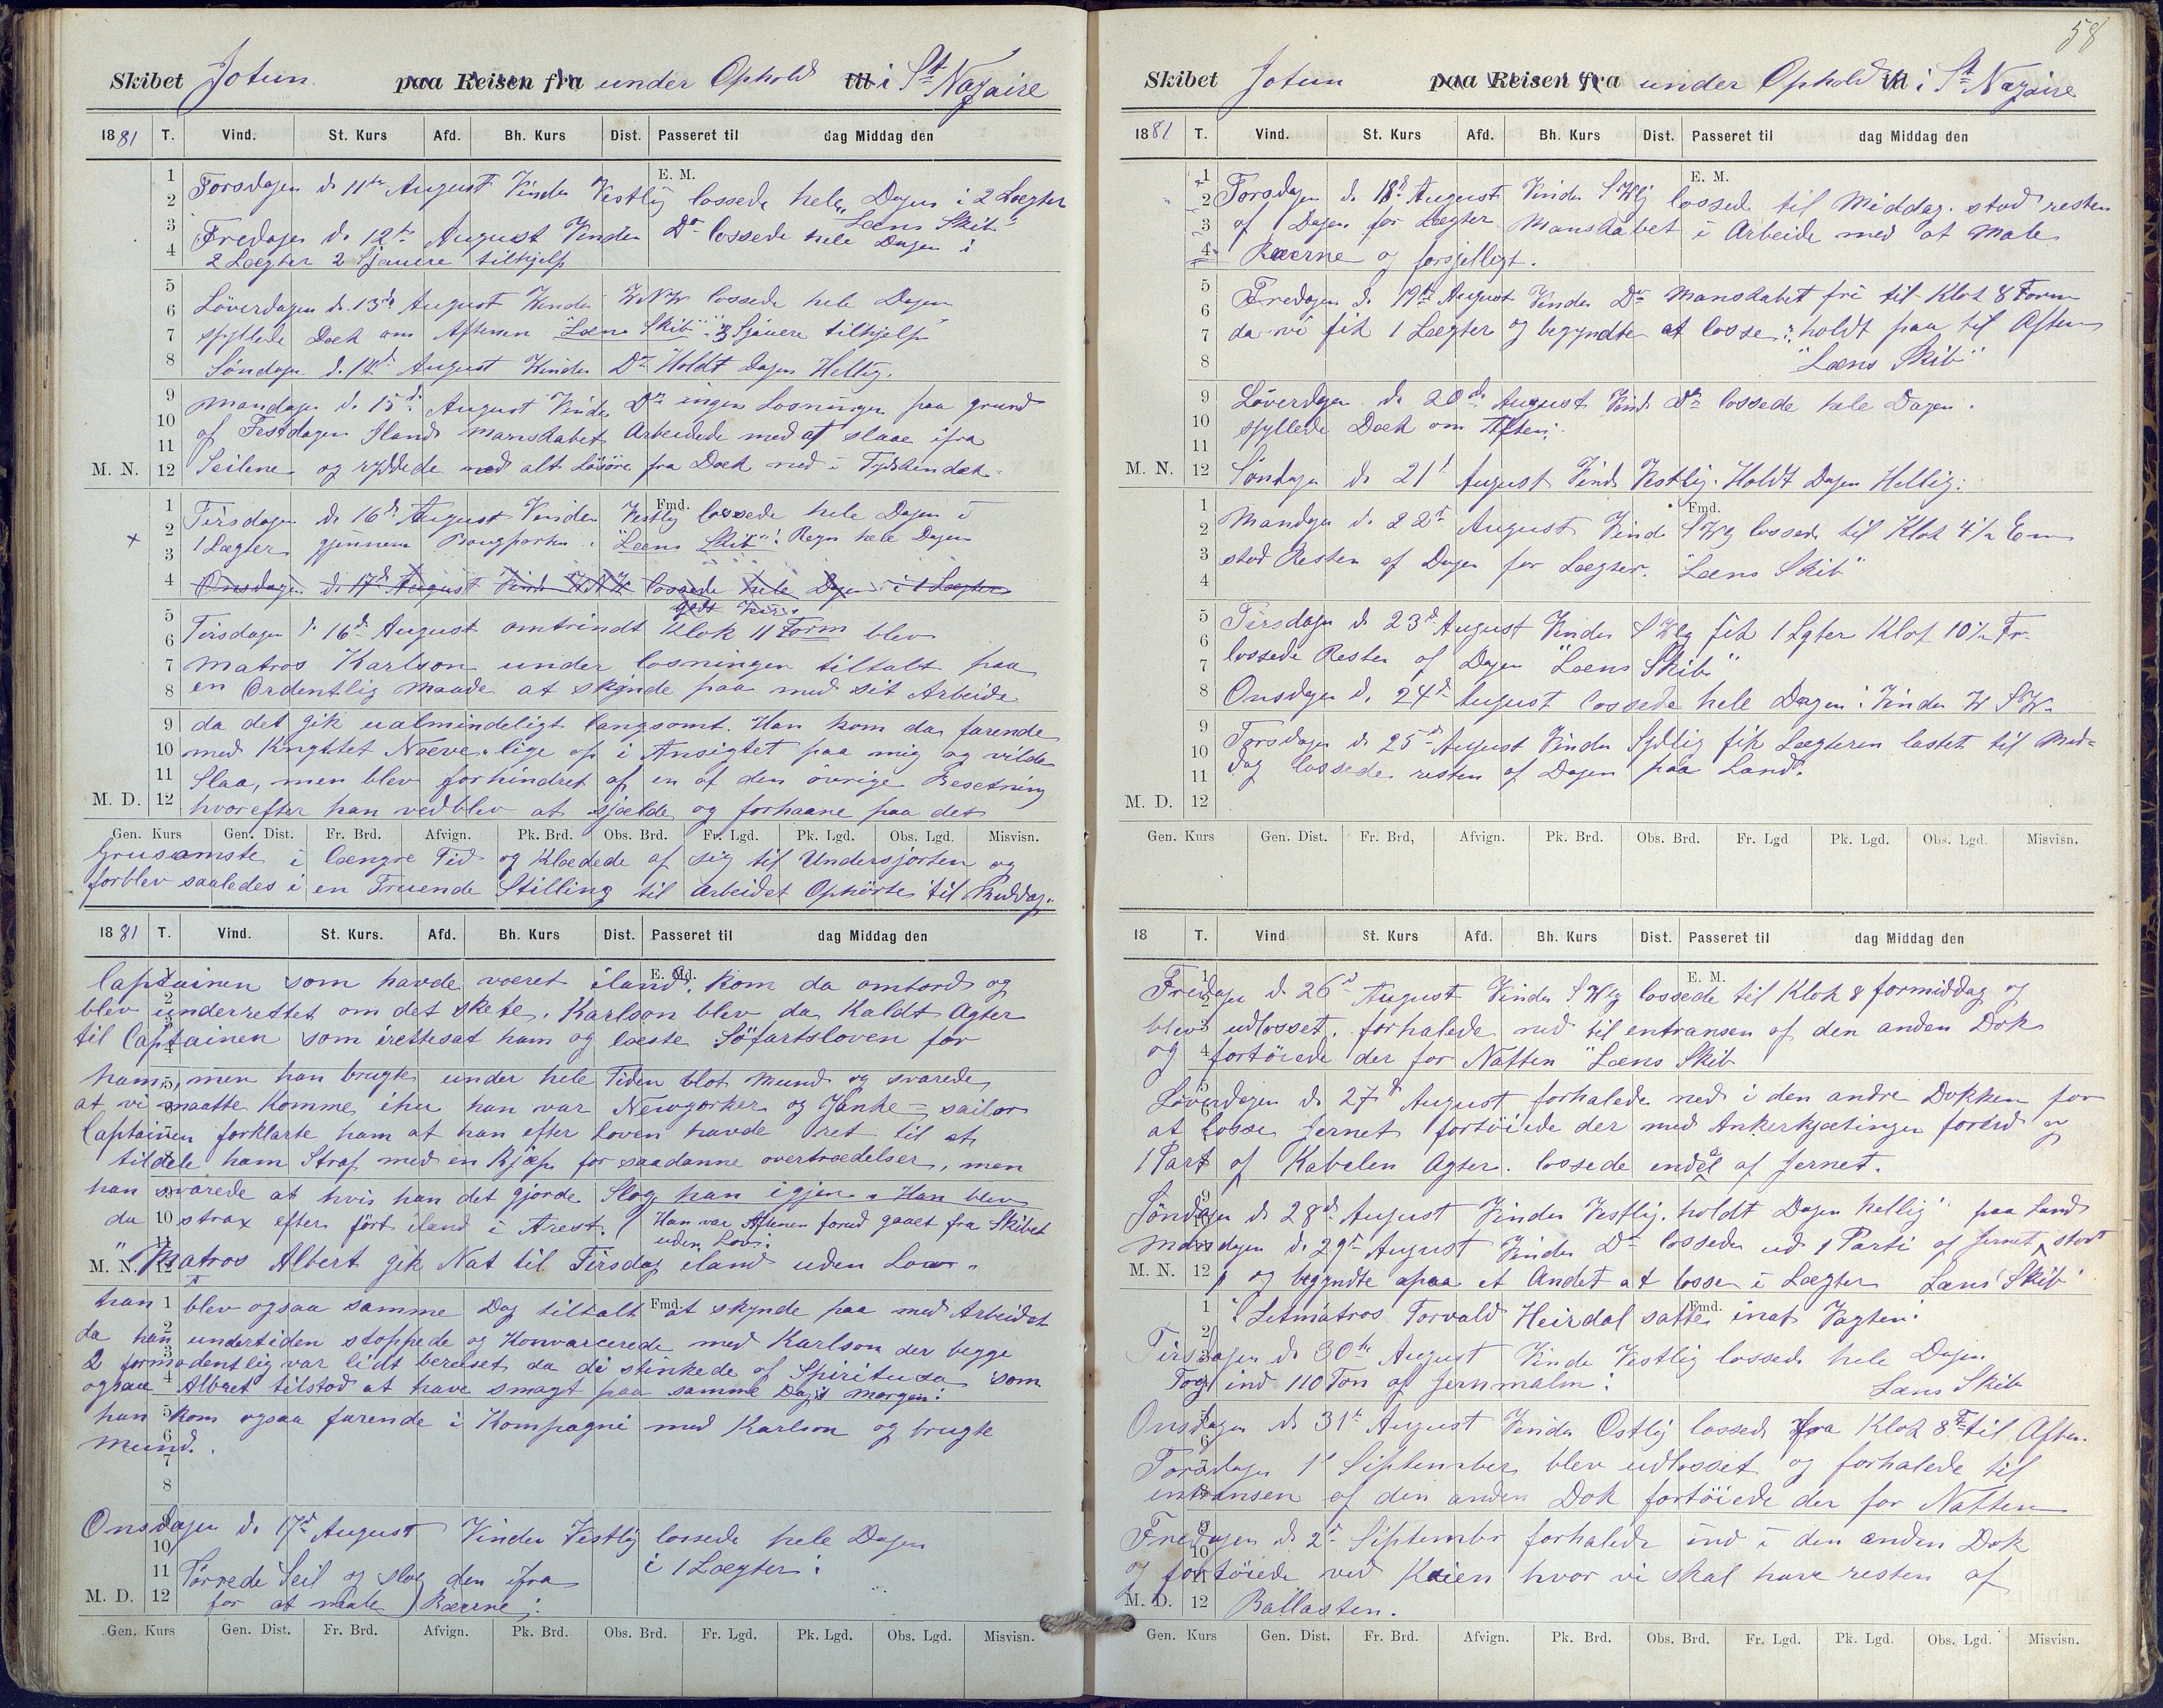 Skibet Jotun paa Reisen fra under Ophold til i St Nazaire
1881 T. Vind. St. Kurs Afd. Bh. Kurs Dist. Passeret til dag Middag den
E. M.
Torsdagen d. 11te August Vinden Vestlig lossede hele Dagen i 2 Lægter
"Læns Skib"
Fredagen d. 12te August Vinden Do lossede hele Dagen i
2 Lægter 2 Sjauere tilhjelp
Löverdagen d. 13de August Vinden WNW lossede hele Dagen
spyllede Dæk om Aftenen "Læns Skib" 3 Sjauere tilhjelp
Söndagen d. 14d August Vinden Do Holdt Dagen Hellig.
Mandagen d. 15d August Vinden Do ingen Losningen paa grund
af Festdagen Iland Manskabet Arbeidede med at slaae ifra
M. N. Seilene og ryddede med alt Lösöre fra Dæk ned i
Fmd.
Tirsdagen d. 16d August Vinden Vestlig lossede hele Dagen i
1 Lægter gjennem Bougporten. "Læns Skib" Regn hele Dagen
Onsdagen d. 17d August Vind WNW lossede hele Dagen i 1 Lægter
godt Veir.
Tirsdagen d. 16d August omtrindt Klok 11 Form blev
Matros Karlson under losningen tiltalt paa
en Ordentlig Maade at skynde paa med sit Arbeide
da det gik ualmindeligt langsomt. Han kom da farende
med Knyttet Næve lige op i Ansigtet paa mig og vilde
Slaa, men blev forhindret af en af den övrige Besetning
M. D. hvorefter han vedblev at sjælde og forhaane paa det
Gen. Kurs Gen. Dist. Fr. Brd. Afvign. Pk. Brd. Obs. Brd. Fr. Lgd. Pk. Lgd. Obs. Lgd. Misvisn.
Grusomste i længre Tid og Klædede af sig til Undersjorten og
forblev saaledes i en Truende Stilling til Arbeidet Ophörte til Middag.
1881 T. Vind. St. Kurs. Afd. Bh. Kurs Dist. Passeret til dag Middag den
E. Md.
Captainen som havde været iland, kom da ombord og
blev underrettet om det skete. Karlson blev da Kaldt Agter
til Captainen som irettesat ham og læste Söfartsloven for
ham, men han brugte under hele Tiden blot Mund og svarede
at vi maatte Komme ihu han var Newyorker og Yanke-sailor
Captainen forklarte ham at han efter Loven havde ret til at
tildele ham Straf med en Kjæp for saadanne overtrædelser, men
han svarede at hvis han det gjorde Slog han igjen. Han blev
da strax efter fört iland i Arest. (Han var Aftenen forud gaaet fra Skibet
uden Lov.
M. N. Matros Albert gik Nat til Tirsdag iland uden Lov.
han blev ogsaa samme Dag tiltalt at skynde paa med Arbeidet
Fmd.
da han undertiden stoppede og Konvarcerede med Karlson der begge
2 formodentlig var lidt beruset da de stinkede af Spiritusa som
ogsaa Albret tilstod at have smagt paa samme Dags Morgen:
han kom ogsaa farende i Kompagni med Karlson og brugte
Mund.
Onsdagen d. 17d August Vinden Vestlig lossede hele Dagen
i 1 Lægter:
Törrede Seil og slog den ifra
M. D. for at male Ræerne:
Gen. Kurs Gen. Dist. Fr. Brd. Afvign. Pk. Brd. Obs. Brd. Fr. Lgd. Pk. Lgd. Obs. Lgd. Misvisn.
58
Skibet Jotun paa Reisen fra under Ophold til i St Nazaire
1881 T. Vind. St. Kurs Afd. Bh. Kurs Dist. Passeret til dag Middag den
E. M.
Torsdagen d. 18d August Vinden SWlig lossede til Middag. stod resten
af Dagen for Lægter Manskabet i Arbeide med at Male
Ræerne og forsjelligt.
Fredagen d. 19d August Vinden Do Manskabet fri til Klok 8 Form
da vi fik 1 Lægter og begyndte at losse: holdt paa til Aften
"Læns Skib"
Löverdagen d. 20de August Vind Do lossede hele Dagen.
spyllede Dæk om Aften:
M. N. Söndagen d. 21d August Vind Vestlig. Holdt Dagen Hellig:
Fmd.
Mandagen d. 22d August Vind SWlg lossede til Klok 4½ Em
stod Resten af Dagen for Lægter. "Læns Skib"
Tirsdagen d. 23d August Vinden SWlg fik 1 Lgter Klok 10½ Fr.
lossede Resten af Dagen "Læns Skib"
Onsdagen d. 24d August lossede hele Dagen: Vinden W SW
Torsdagen d. 25d August Vinden Sydlig fik Lægteren lastet til Mid-
dag lossede resten af Dagen paa Land.
M. D.
Gen. Kurs Gen. Dist. Fr. Brd, Afvign. Pk. Brd. Obs. Brd. Fr. Lgd Pk. Lgd. Obs. Lgd. Misvisn.
18 T. Vind. St. Kurs Afd. Bh. Kurs Dist. Passeret til dag Middag den
E. M.
Fredagen d. 26d August Vinden SWlg lossede til Klok 8 formiddag og
blev udlosset. forhalede ned til entransen af den anden Dok
og fortöiede der for Natten "Læns Skib
Löverdagen d. 27d August forhalede ned i den andre Dokken for
at losse Jernet fortöiede der med Ankerkjætingen forud og
1 Part af Kabelen Agter. lossede endel af Jernet.
Söndagen d. 28d August Vinden Vestlig. holdt Dagen hellig
paa Land
Mandagen d. 29d August Vinden Do lossede ud 1 Parti af Jernet stort
M. N. og begyndte paa et Andet at losse i Lægter Læns Skib
Fmd.
Letmatros Torvald Heirdal satte inat Vagten:
Tirsdagen d. 30te August Vinde Vestlig lossede hele Dagen
Tog ind 110 Ton af Jernmalm: Læns Skib
Onsdagen d. 31te August Vinden Ostlig lossede fra Klok 8 F til Aften
Torsdagen 1d September blev udlosset og forhalede til
entransen af den anden Dok fortöiede der for Natten
Fredagen d. 2d Septembr forhalede ind i den anden Dok
og fortöiede ved Kaien hvor vi skal have resten af
M. D. Ballasten.
Gen. Kurs Gen. Dist. Fr. Brd. Afvign. Pk. Brd. Obs. Brd. Fr. Lgd. Pk. Lgd. Obs. Lgd. Misvisn.